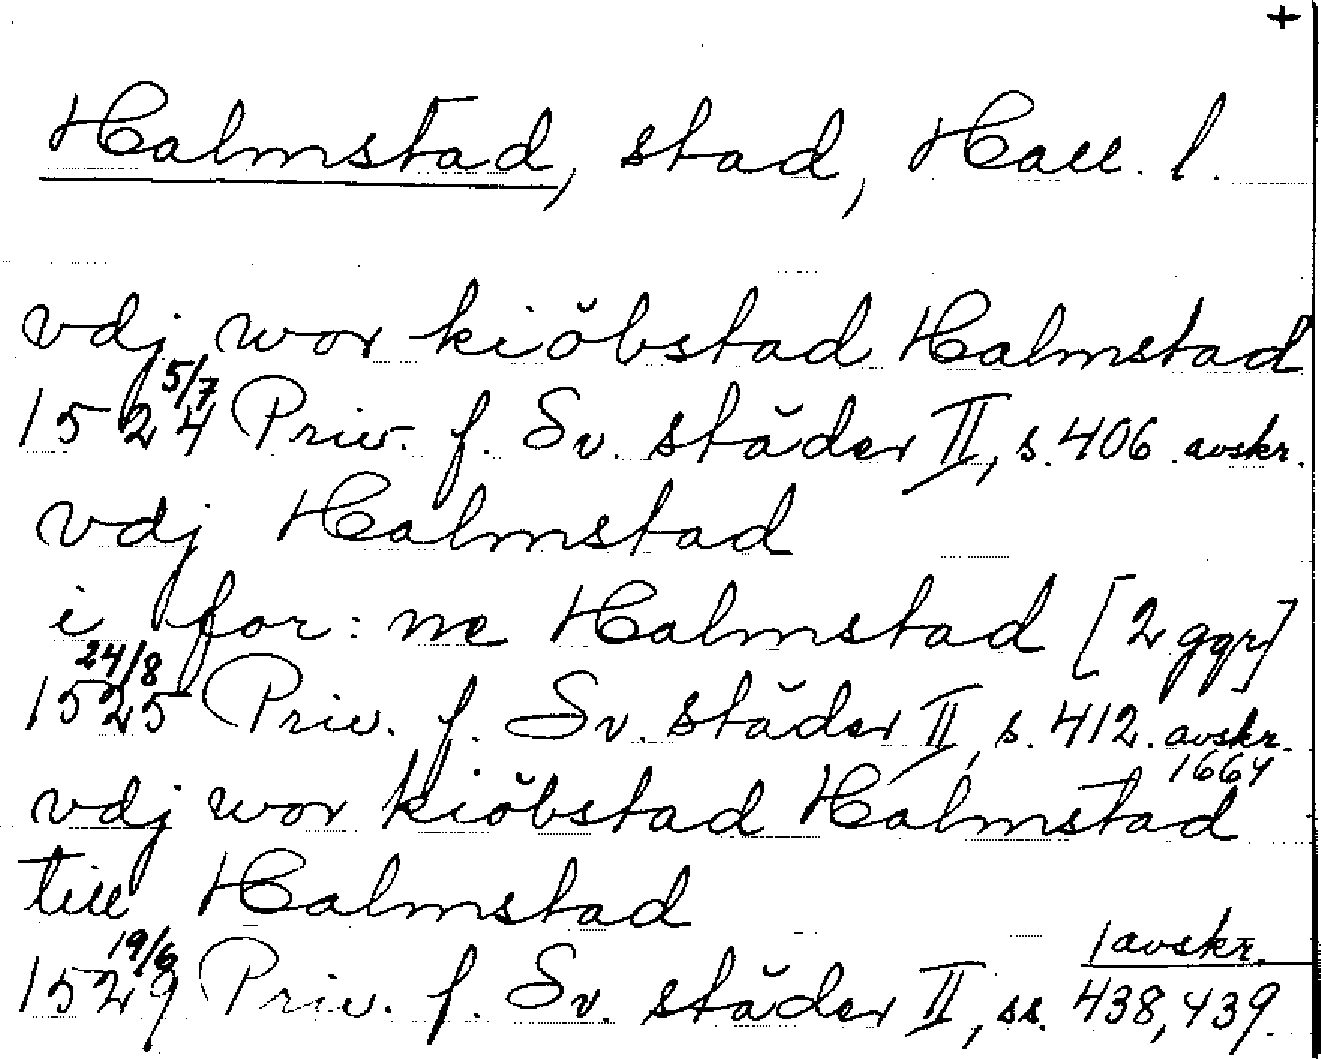 +
Halmstad, stad, Hall. l.
vdj wor kiöbstad Halmstad
1524 5/7 Priv. f. Sv. städer II, s. 406 avskr.
vdj Halmstad
i for: ne Halmstad [2 ggr]
1525 24/8 Priv. f. Sv. städer II, s. 412. avskr. 1664
vdj wor kiöbstad Halmstad
till Halmstad
1529 19/6 Priv. f. Sv. städer II, ss. 438, 439. avskr.